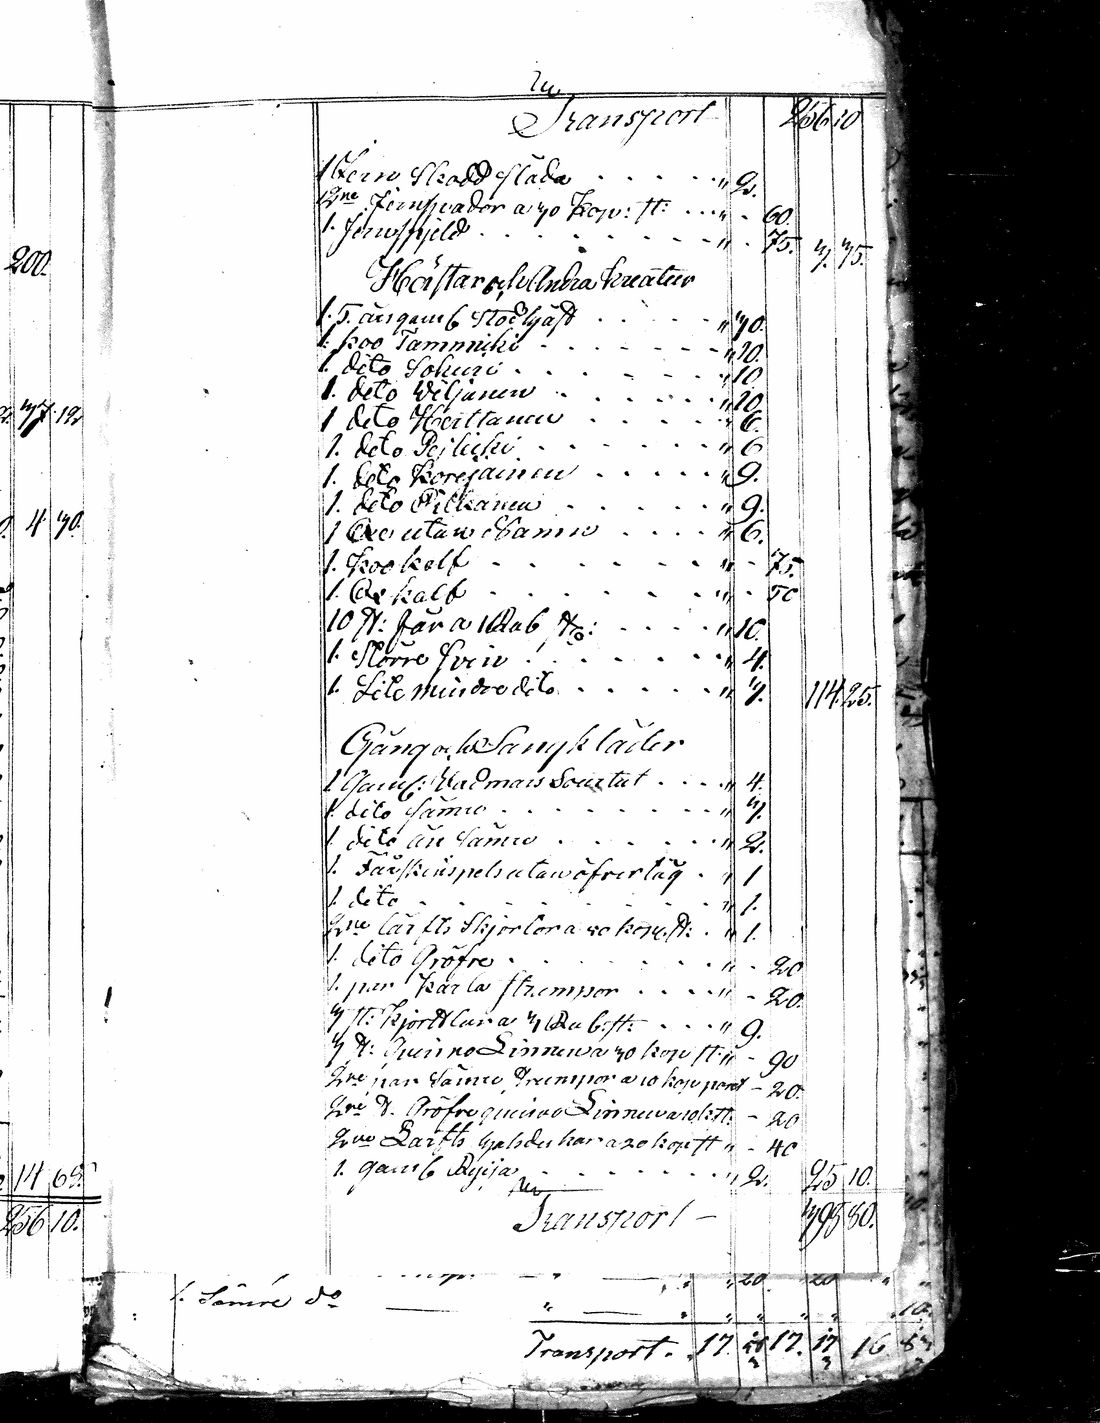 Transport 256 10
1 Jern Skodd Släda . . . . " 2.
2ne Jernspador a 30 Kop: st: . . . " - 60.
1. Jernspjeld . . . . " - 75. 3. 35.
200.
Hästar och Andra Kreatur
1. 5. års gam6 Stod . . . . " 30.
1. Koo Tammiki . . . . " 10.
1. dito Sokuri . . . . " 10
1. deto Wiljanen . . . . " 10
1 deto Heittanen . . . . " 6.
1. deto . . . . " 6
1. deto Korejainen . . . . " 9.
1. deto Pilkanen . . . . " 9.
1 Oxe utan Namn . . . . " 6.
4 30.
1. Koo kalf . . . . " - 75.
1. Ox kalf . . . . " - 50
10 st: Får a 1 Rub st: . . . . " 10.
1. Större Svin . . . . " 4.
1. Lite mindre dito . . . . " 3. 114 25.
Gång och Sängkläder
1 Gam6: Wadmars Sourtut . . . . " 4.
1. dito Sämre . . . . " 3.
1. dito än Sämre . . . . " 2.
1. Fårskinspels utan öfvertåg . " 1
1. dito . . . . " 1.
2ne Lärfts Skjortor a 50 kop. st: . " 1.
1. dito Gröfre . . . . " - 20
1. par Karla Strumpor . . . . " - 20.
3 st: Kjortlar a 3 Rub: st: . . . " 9.
3 st: Quinno Linnen a 30 kop st: " - 90
2ne par Sämre Strumpor a 10 kop paret - 20.
2ne st. Gröfre quinno Linnen a 10 k st: - 20
2ne Lärfts halsdukar a 20 kop st " - 40
1. gam6 Ryija . . . . " 2. 25 10.
14 65
256 10.
Transport — 398 80.
1. Sämre do
Transport . 17. 17. 17 16